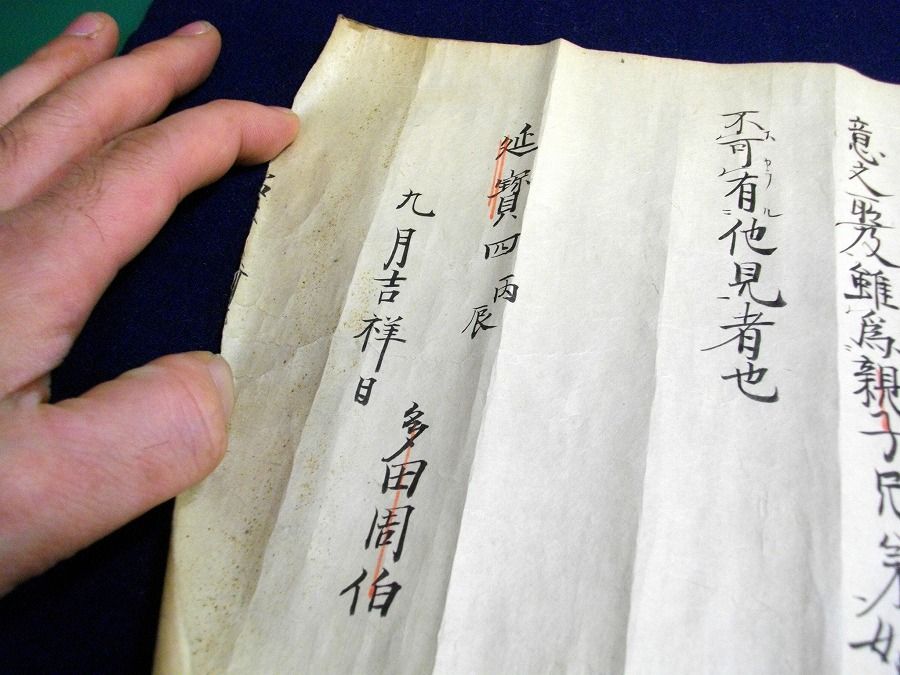 意文眼及雖為親子兄弟如
不可有他見者也
延寳四丙辰
九月吉祥日
多田周伯